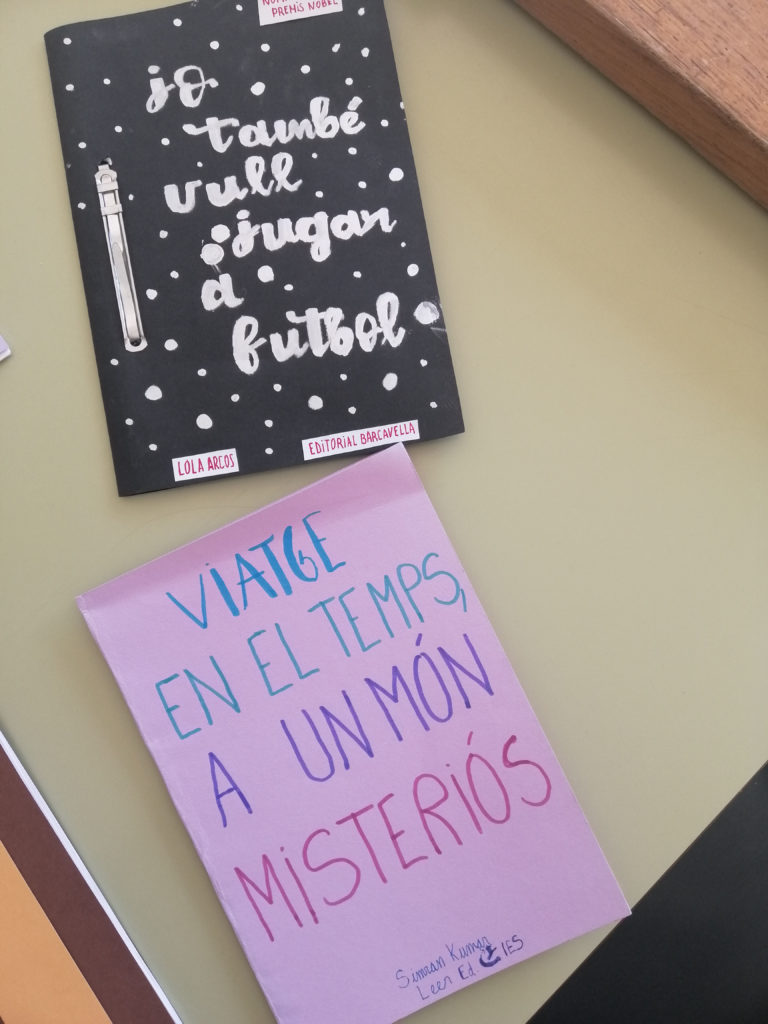 PREMIS NOBEL
jo
també
vull
jugar
a
futbol
LOLA ARCOS
EDITORIAL BARCAVELLA
VIATGE
EN EL TEMPS,
A UN MÓN
MISTERIÓS
Simran Kumar
Leer Ed. IES